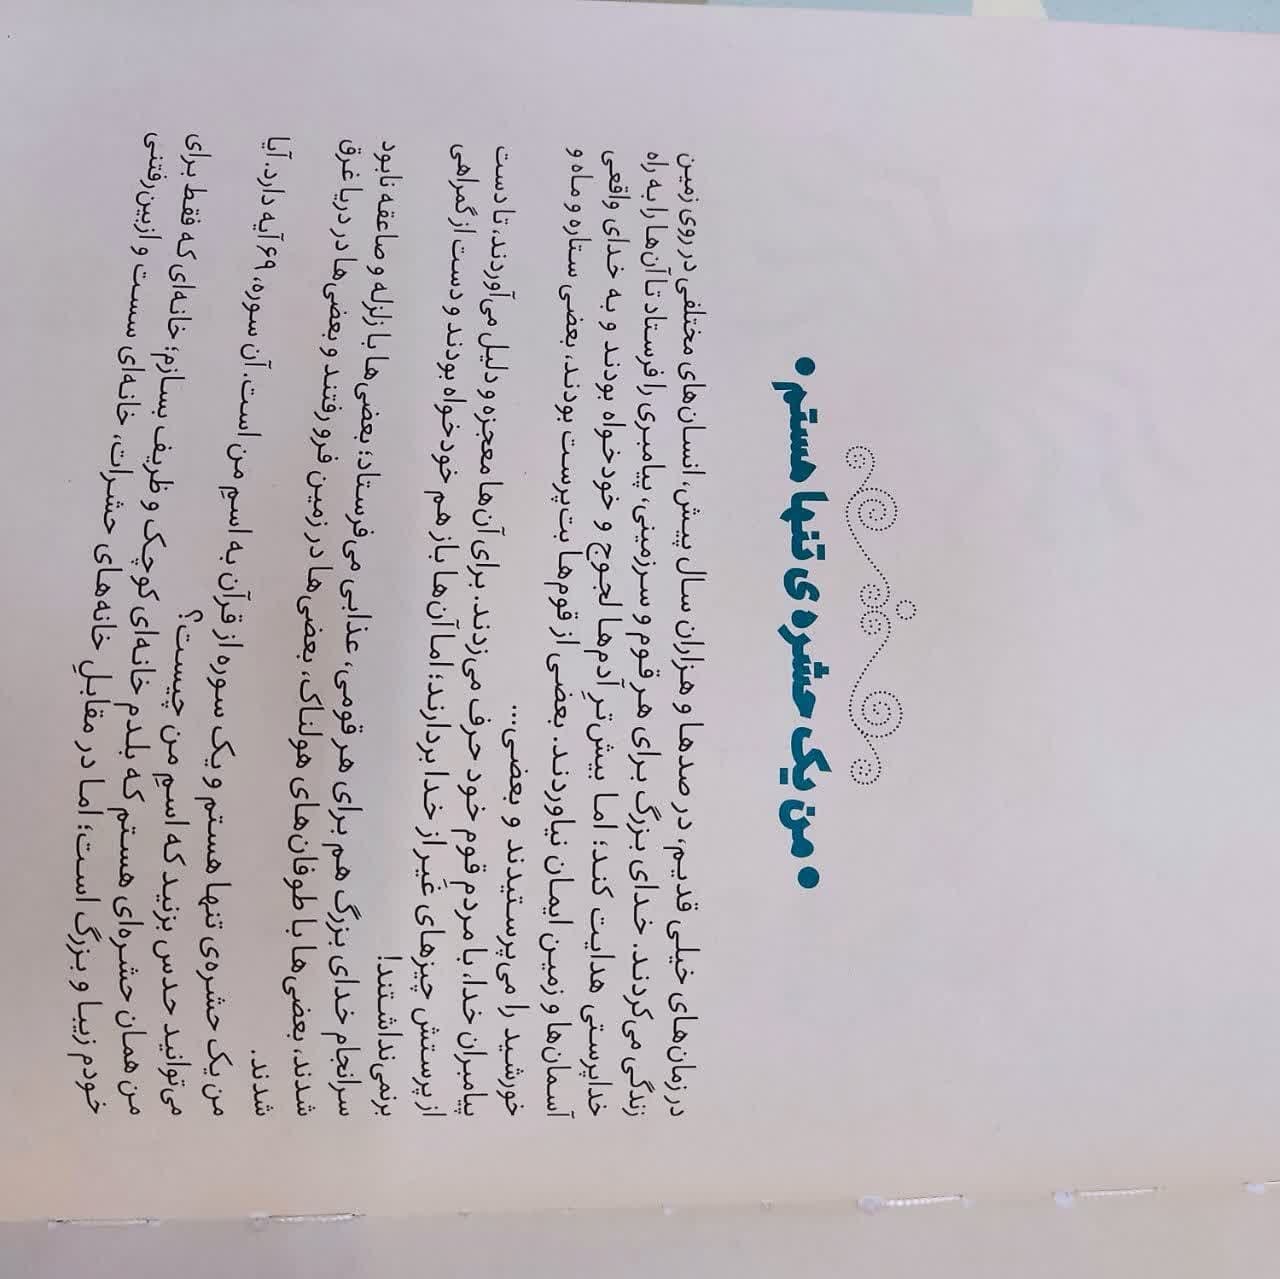 • من یک حشره‌ی تنها هستم •
در زمان‌های خیلی قدیم، در صدها و هزاران سال پیش، انسان‌های مختلفی در روی زمین
زندگی می‌کردند. خدای بزرگ برای هر قوم و سرزمینی، پیامبری را فرستاد تا آن‌ها را به راه
خداپرستی هدایت کند؛ اما بیش‌ترِ آدم‌ها لجوج و خودخواه بودند و به خدای واقعی
آسمان‌ها و زمین ایمان نیاوردند. بعضی از قوم‌ها بت‌پرست بودند، بعضی ستاره و ماه و
خورشید را می‌پرستیدند و بعضی...
پیامبران خدا، با مردمِ قوم خود حرف می‌زدند. برای آن‌ها معجزه و دلیل می‌آوردند، تا دست
از پرستش چیزهای غَیر از خدا بردارند؛ اما آن‌ها باز هم خودخواه بودند و دست از گمراهی
برنمی‌نداشتند!
سرانجام خدای بزرگ هم برای هر قومی، عذابی می‌فرستاد؛ بعضی‌ها با زلزله و صاعقه نابود
شدند، بعضی‌ها با طوفان‌های هولناک، بعضی‌ها در زمین فرو رفتند و بعضی‌ها در دریا غرق
شدند.
من یک حشره‌ی تنها هستم و یک سوره از قرآن به اسمِ من است. آن سوره، ۶۹ آیه دارد. آیا
می‌توانید حدس بزنید که اسمِ من چیست؟
من همان حشره‌ای هستم که بلدم خانه‌ای کوچک و ظریف بسازم؛ خانه‌ای که فقط برای
خودم زیبا و بزرگ است؛ اما در مقابلِ خانه‌های حشرات، خانه‌ای سست و ازبین‌رفتنی